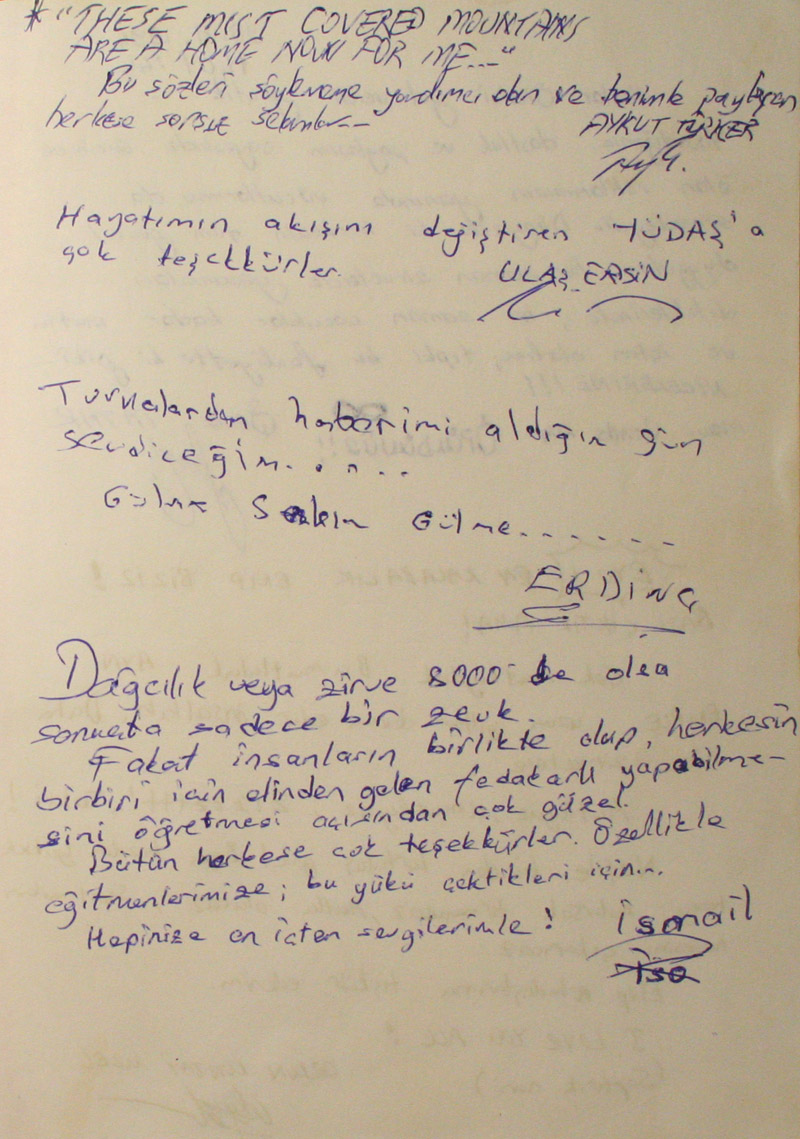 * "THESE MIST COVERED MOUNTAINS
ARE A HOME NOW FOR ME...."
Bu sözleri söylememe yardımcı olan ve benimle paylaşan
herkese sonsuz selamlar...
AYKUT TÜRKER
Hayatımın akışını değiştiren YÜDAŞ'a
çok teşekkürler.
ULAŞ ERSİN
Turnalardan haberimi aldığın gün
sevdiceğim.....
Gülme Sakın Gülme.......
ERDİNÇ
Dağcılık veya zirve 8000 de olsa
sonuçta sadece bir zevk.
Fakat insanların birlikte olup, herkesin
birbiri için elinden gelen fedakarlı yapabilme-
sini öğretmesi açısından çok güzel.
Bütün herkese çok teşekkürler. Özellikle
eğitmenlerimize; bu yükü çektikleri için...
Hepinize en içten sevgilerimle!
İsmail
İso